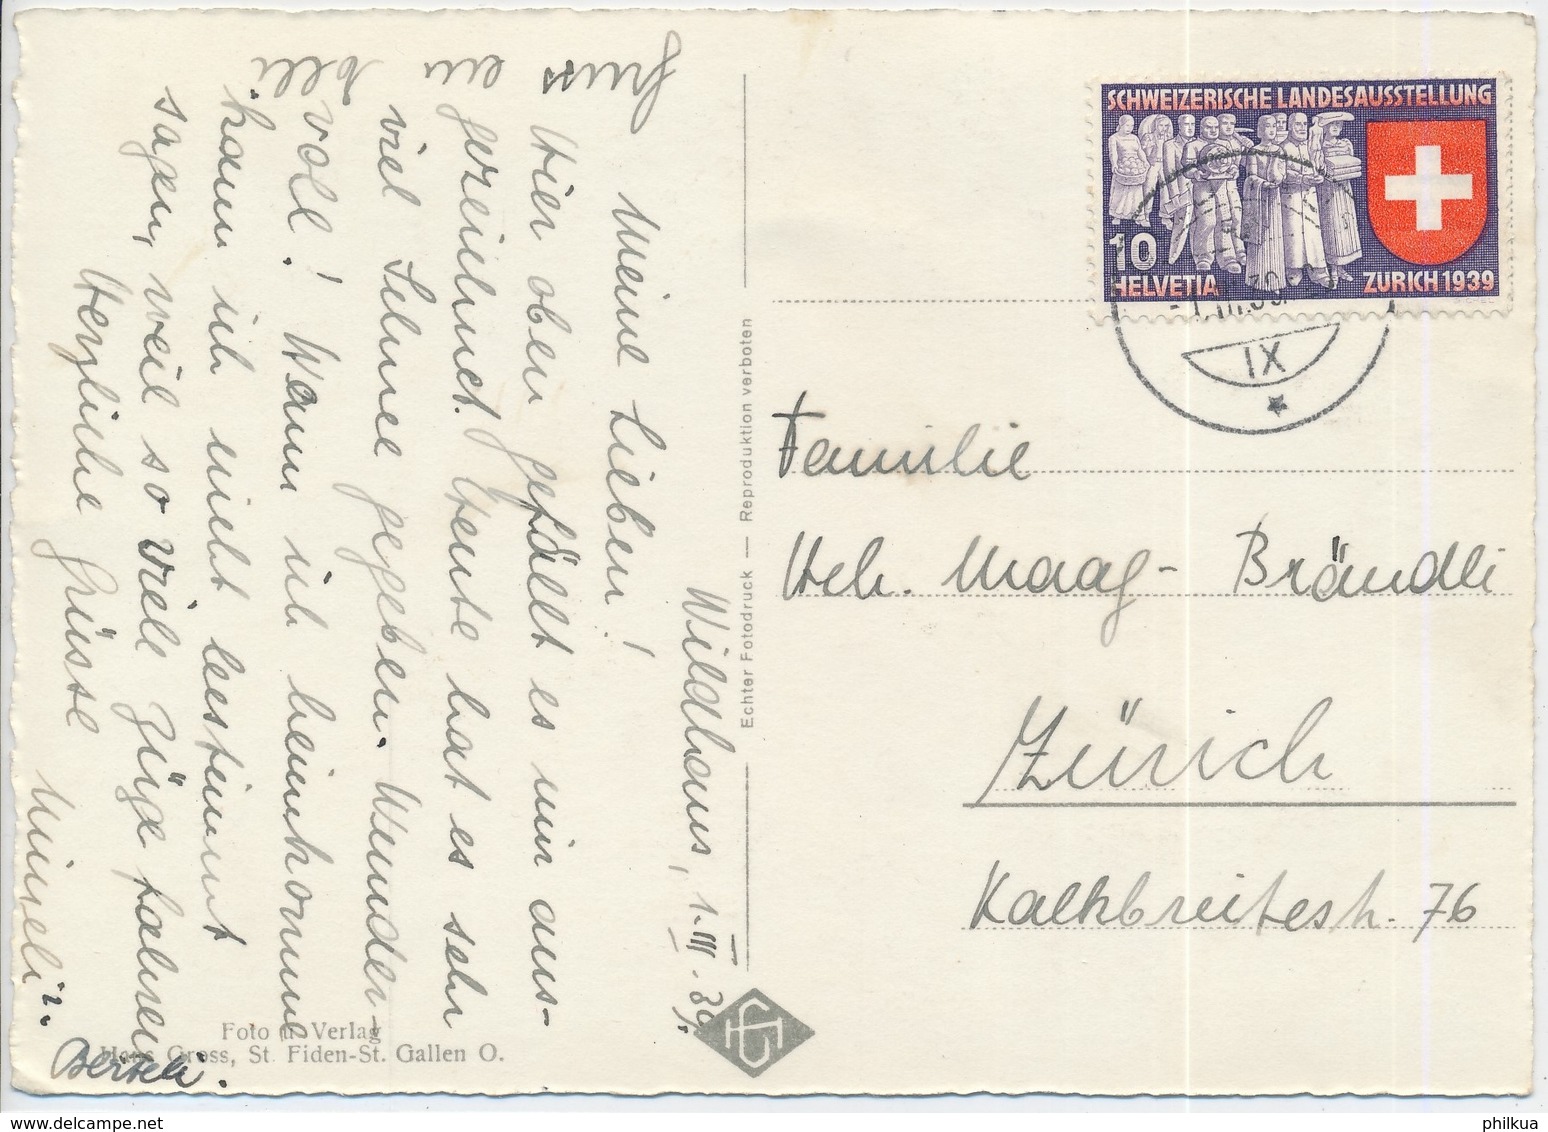 Wildhaus, 1. III. 39.
Meine Lieben!
Hier oben gefällt es mir aus-
gezeichnet. Heute hat es sehr
viel Schnee gegeben. Wunder-
voll! Wann ich heimkomme
kann ich nicht bestimmt
sagen, weil so viele Züge fahren
Herzliche Grüsse
Mineli u.
Berteli.
Foto u. Verlag
Hans Gross, St. Fiden-St. Gallen O.
Echter Fotodruck — Reproduktion verboten
SCHWEIZERISCHE LANDESAUSSTELLUNG
10
HELVETIA
ZURICH 1939
IX
Familie
Hch. Maag-Brändli
Zürich
Kalkbreitestr. 76
www.delcampe.net
philkua